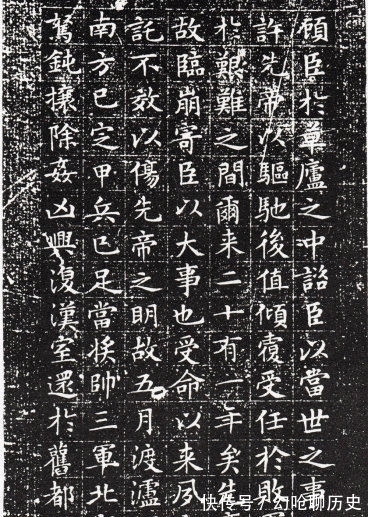 顧臣於草廬之中諮臣以當世之事
許先帝以驅馳後值傾覆受任於敗
於艱難之間爾来二十有一年矣先
故臨崩寄臣以大事也受命以来夙
託不效以傷先帝之明故五月渡瀘
南方已定甲兵已足當獎帥三軍北
駑鈍攘除姦凶興復漢室還於舊都
快传号/幻呛聊历史